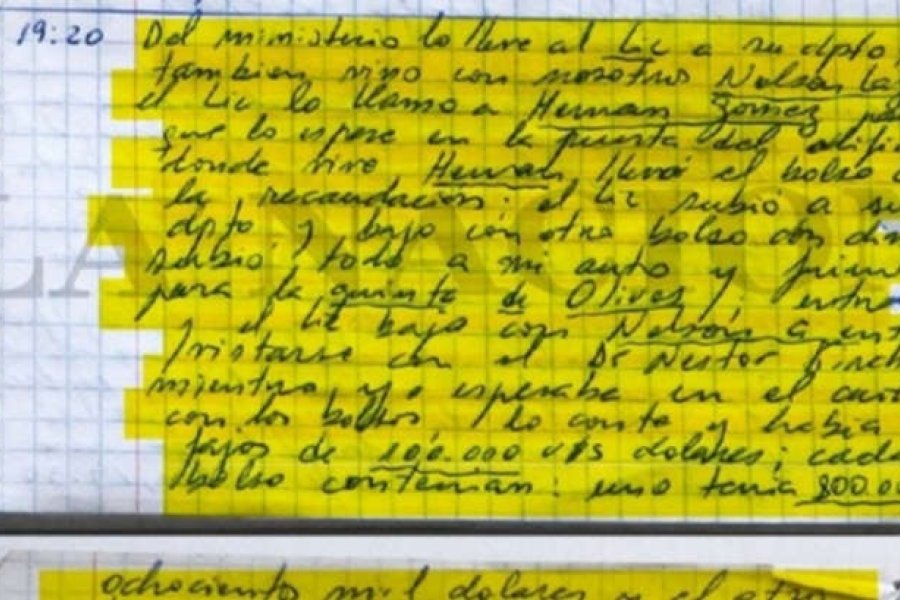 19:20 Del ministerio lo lleve al Lic a su dpto
tambien vino con nosotros Nelson La
el Lic lo llamo a Hernan Gomez pa
que lo espere en la puerta del edifi
donde vive Hernan llevó el bolso
la recaudacion; el Lic subio a su
dpto y bajo con otro bolso con din
subio todo a mi auto y fuim
para la quinta de Olivos, entra
y el Lic bajo con Nelson a ent
/vistarse con el Dr Nestor Kirch
mientras yo esperaba en el auto
con los bolsos, lo conte y había
fajos de 100.000 u$s dolares; cada
bolso contenian: uno tenia 800.00
ochociento mil dolares y el otro
LA NACION